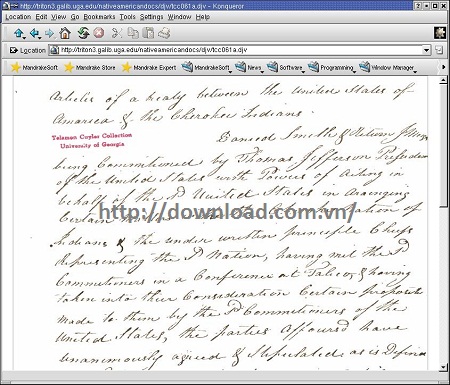 http://triton3.galib.uga.edu/nativeamericandocs/djvu/tcc061a.djv - Konqueror
Location Edit View Go Bookmarks Tools Settings Window Help
Location http://triton3.galib.uga.edu/nativeamericandocs/djvu/tcc061a.djv
MandrakeSoft Mandrake Store Mandrake Expert MandrakeSoft News Software Programming Window Manager
Articles of a treaty between the United States of
America & the Cherokee Indians.
Telamon Cuyler Collection
University of Georgia
Daniel Smith & Return J.
being Commitioned by Thomas Jefferson President
of the United States with Powers of Acting in
behalf of the Sd United States in Arainging
Certain
http://download.com.vn/
Indians & the under written principle Chiefs
Representing the Sd Nation, having met the Sd
Commitioners in a Conference at Talico, & having
taken into their Consideration Certain proposals
made to them by the Sd Commitioners of the
United States, the parties Affoursd have
Unanimously agreed & Stipulated as is Defin